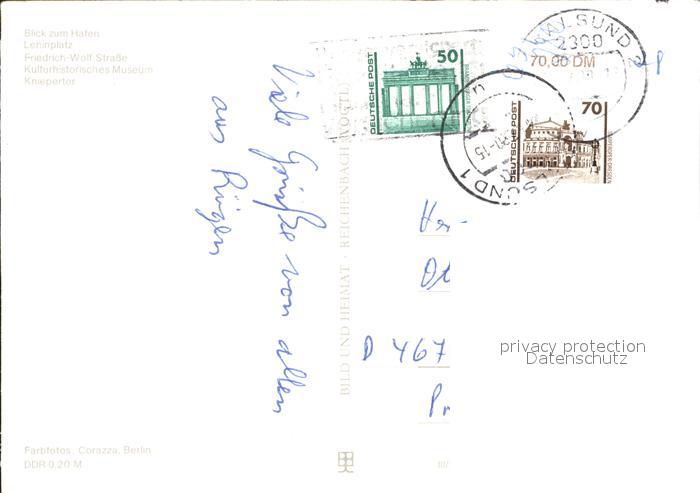 Blick zum Hafen
Leninplatz
Friedrich-Wolf Straße
Kulturhistorisches Museum
Kniepertor
Viele Grüße von allen
aus Rügen
BILD UND HEIMAT · REICHENBACH (VOGTL)
DEUTSCHE POST
50
ALSUND
2300
70,00 DM
DEUTSCHE POST
70
SUND 1
Her-
D 467
privacy protection
Datenschutz
Farbfotos: Corazza, Berlin
DDR 0,20 M